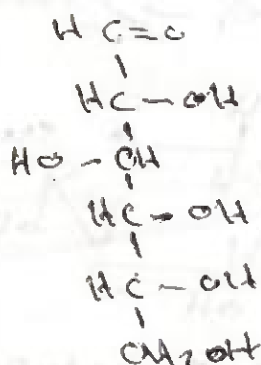 H C=O
HC - OH
HO - CH
HC - OH
HC - OH
CH2OH